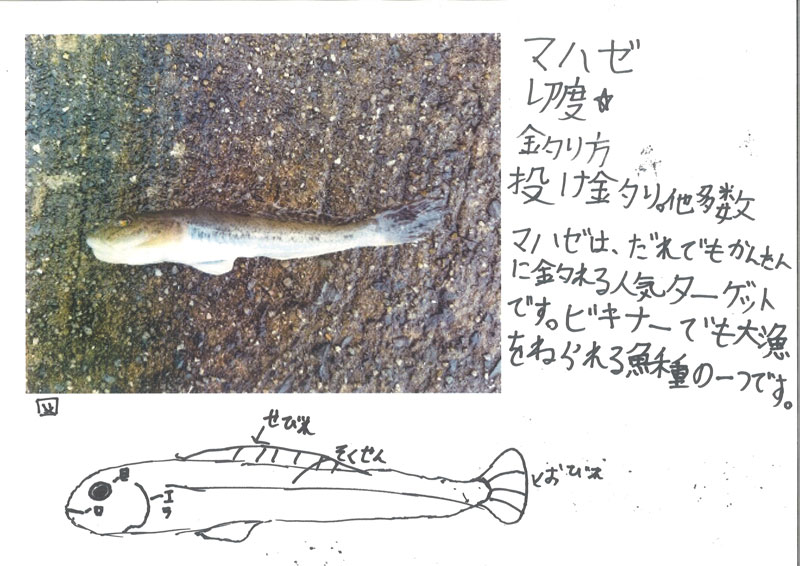 マハゼ
度☆
釣り方
投げ釣り。他多数
マハゼは、だれでもかんたん
に釣れる人気ターゲット
です。ビギナーでも大漁
をねらえる魚種の一つです。
せびれ
そくせん
目
エラ
口
おびれ